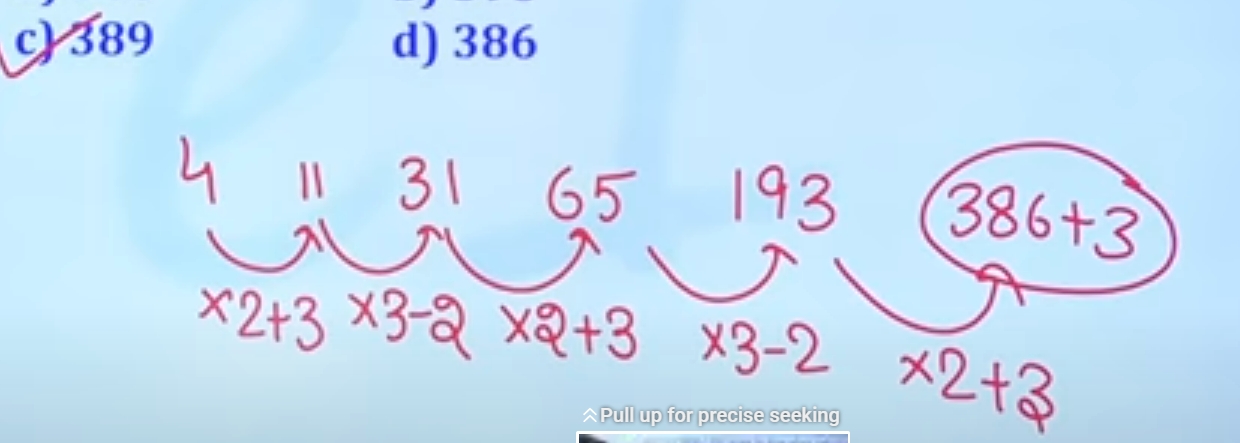 c) 389 d) 386
4 11 31 65 193 386+3
×2+3 ×3-2 ×2+3 ×3-2 ×2+3
Pull up for precise seeking